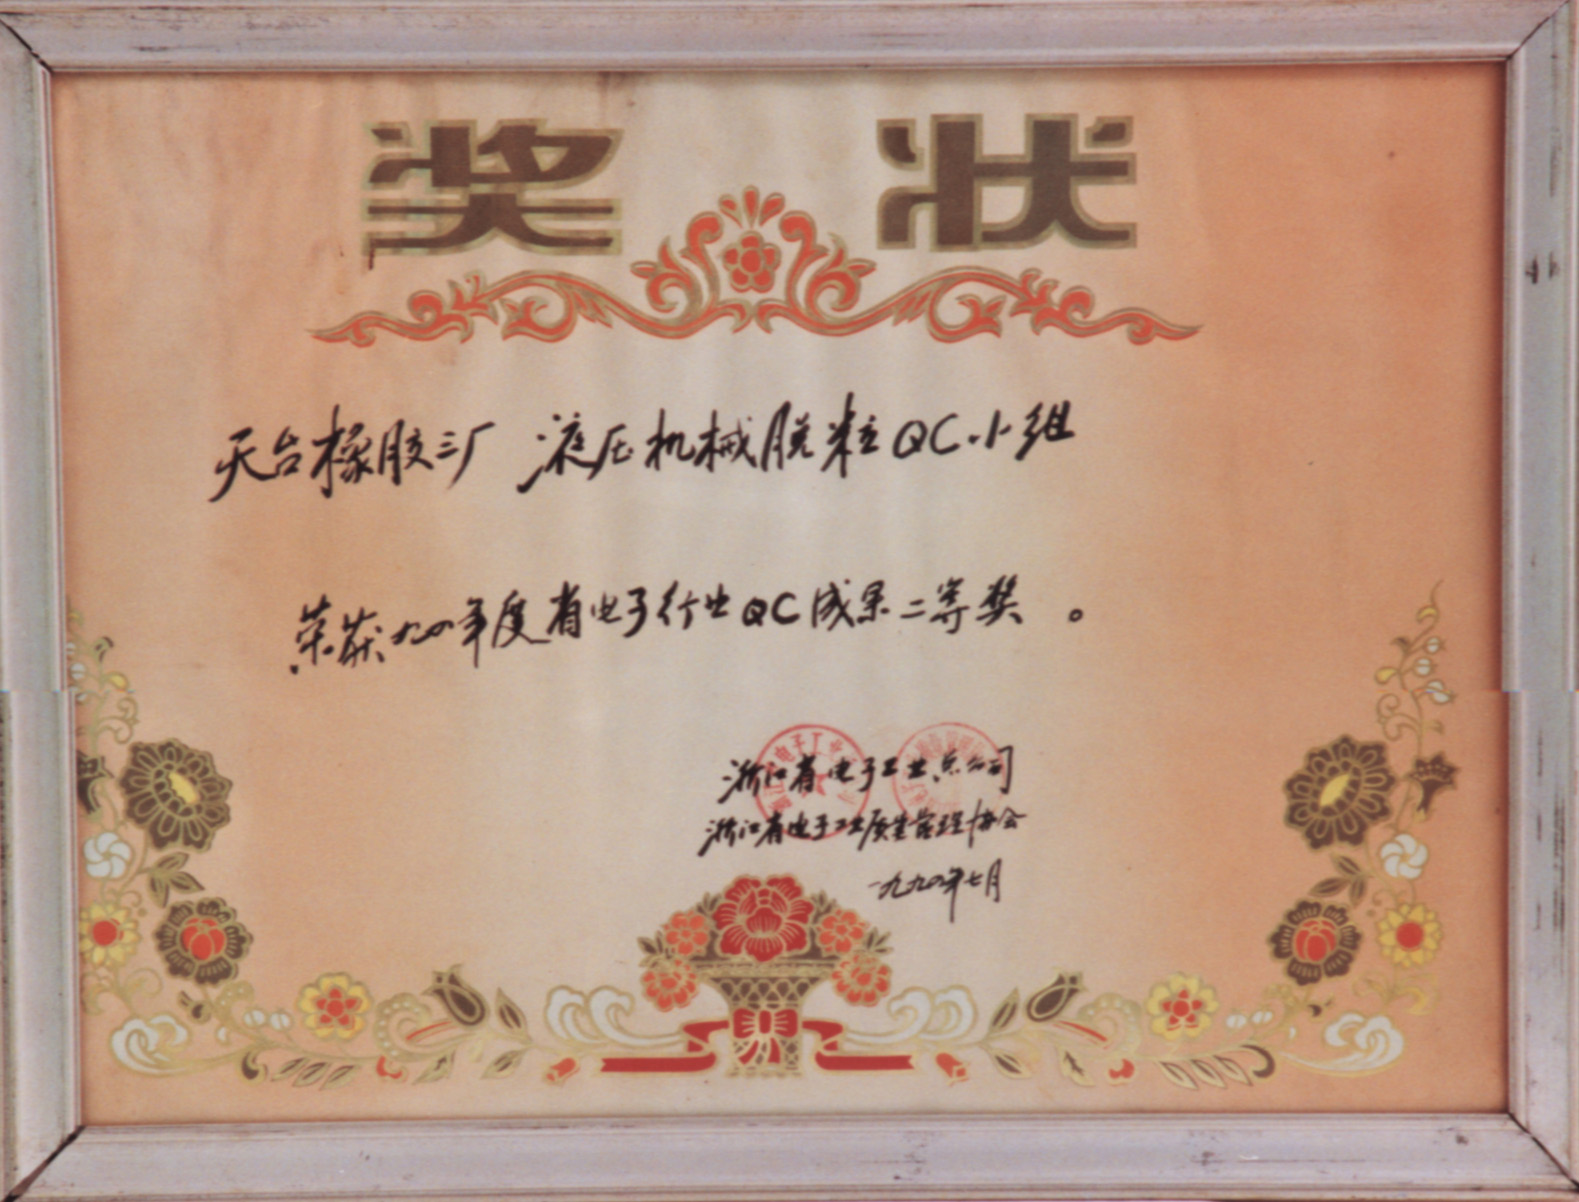 奖 状
天台橡胶三厂 液压机械脱粒QC小组
荣获九〇年度省电子行业QC成果二等奖。
浙江省电子工业总公司
浙江省电子工业质量管理协会
一九九〇年七月